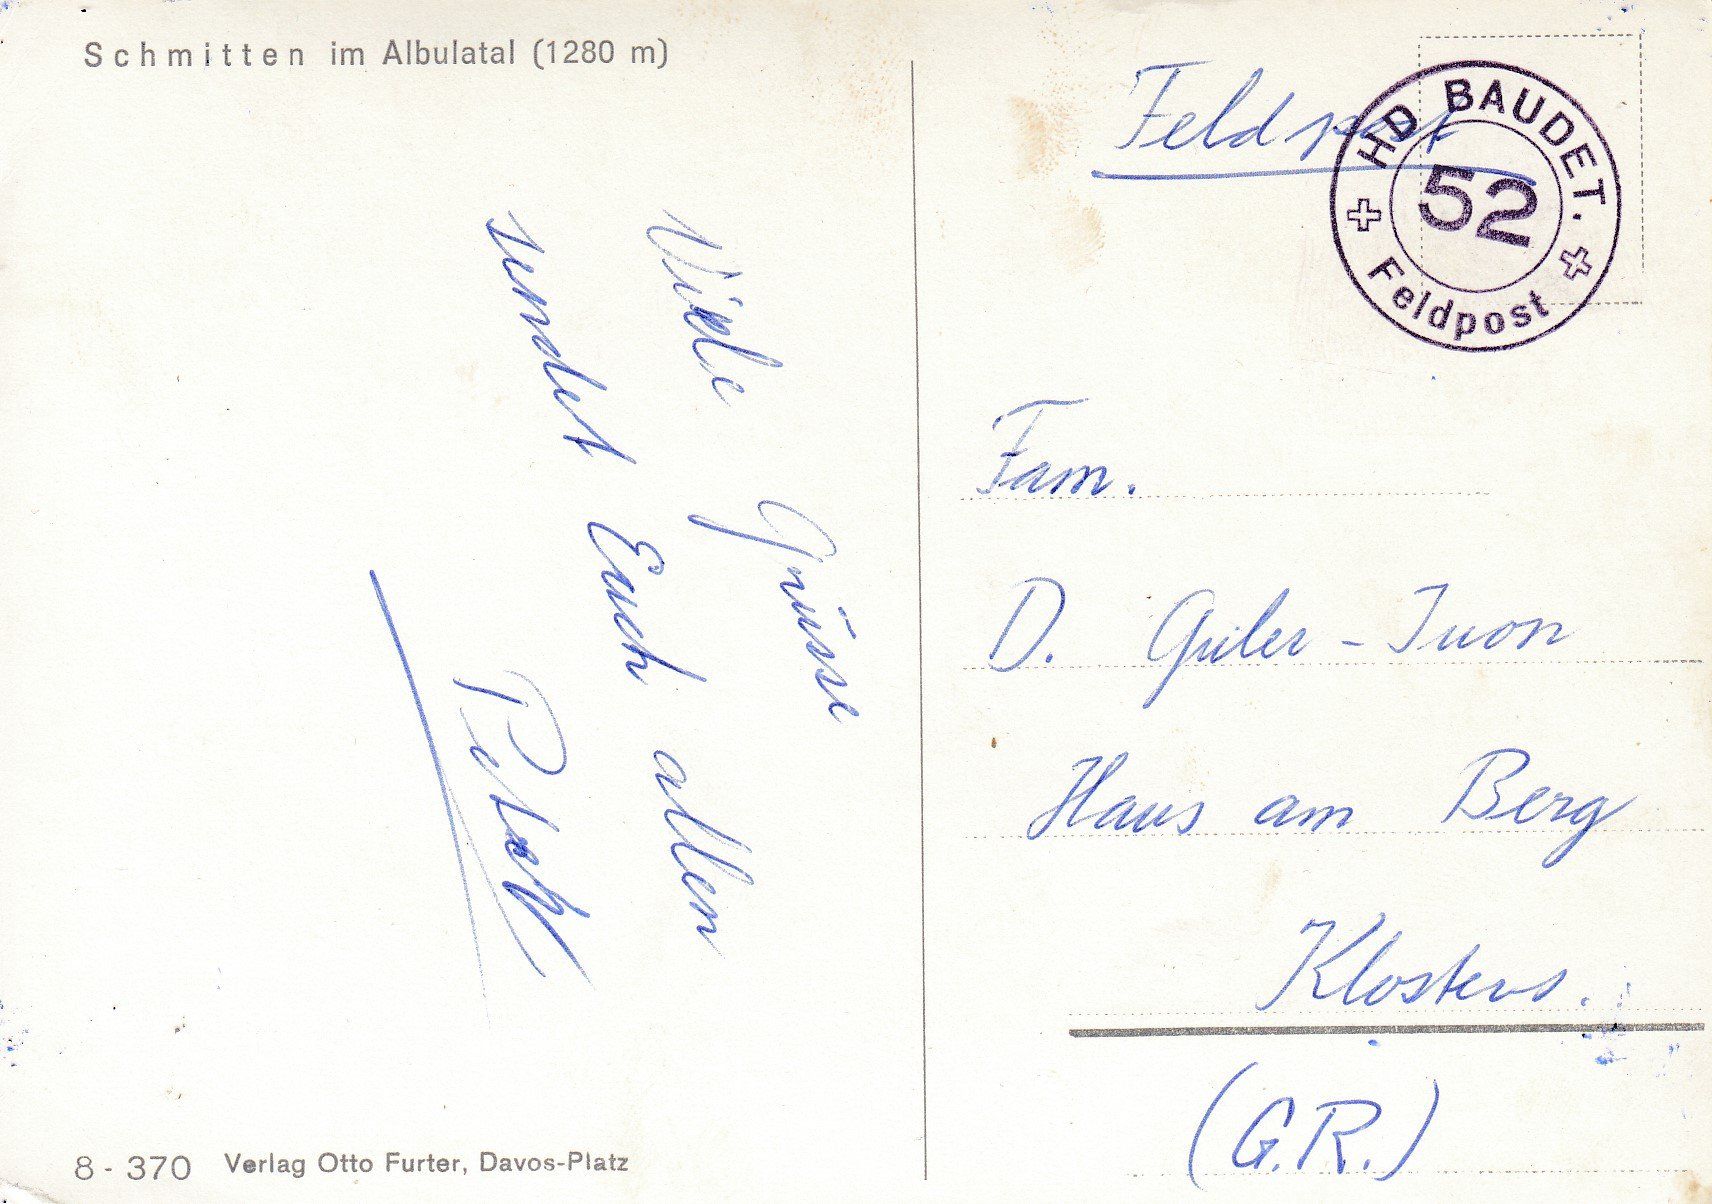 Schmitten im Albulatal (1280 m)
Viele Grüsse
sendet Euch allen
8 - 370 Verlag Otto Furter, Davos-Platz
Feldpost
HD BAUDET.
52
Feldpost
Fam.
D. Guler - Juon
Haus am Berg
Klosters.
(G.R.)